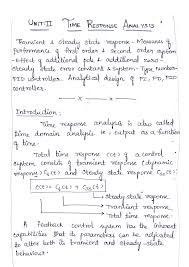 UNIT-II TIME RESPONSE ANALYSIS
Transient & Steady state response - Measures of
performance of first order & Second order system
- Effect of additional pole & additional zero -
Steady state error constant & System - Type number
PID controller. Analytical design of PI, PD, PID
controller.
Introduction:
Time response analysis is also called
time domain analysis i.e., output as a function
of time.
Total time response c(t) of a control
system consists of transient response (dynamic
response) Ct(t) and steady state response Css(t).
C(t) = Ct(t) + Css(t)
Steady state response
Transient response
Total time response
A feedback control system has the inherent
capabilities that its parameters can be adjusted
to alter both its transient and steady-state
behaviour.